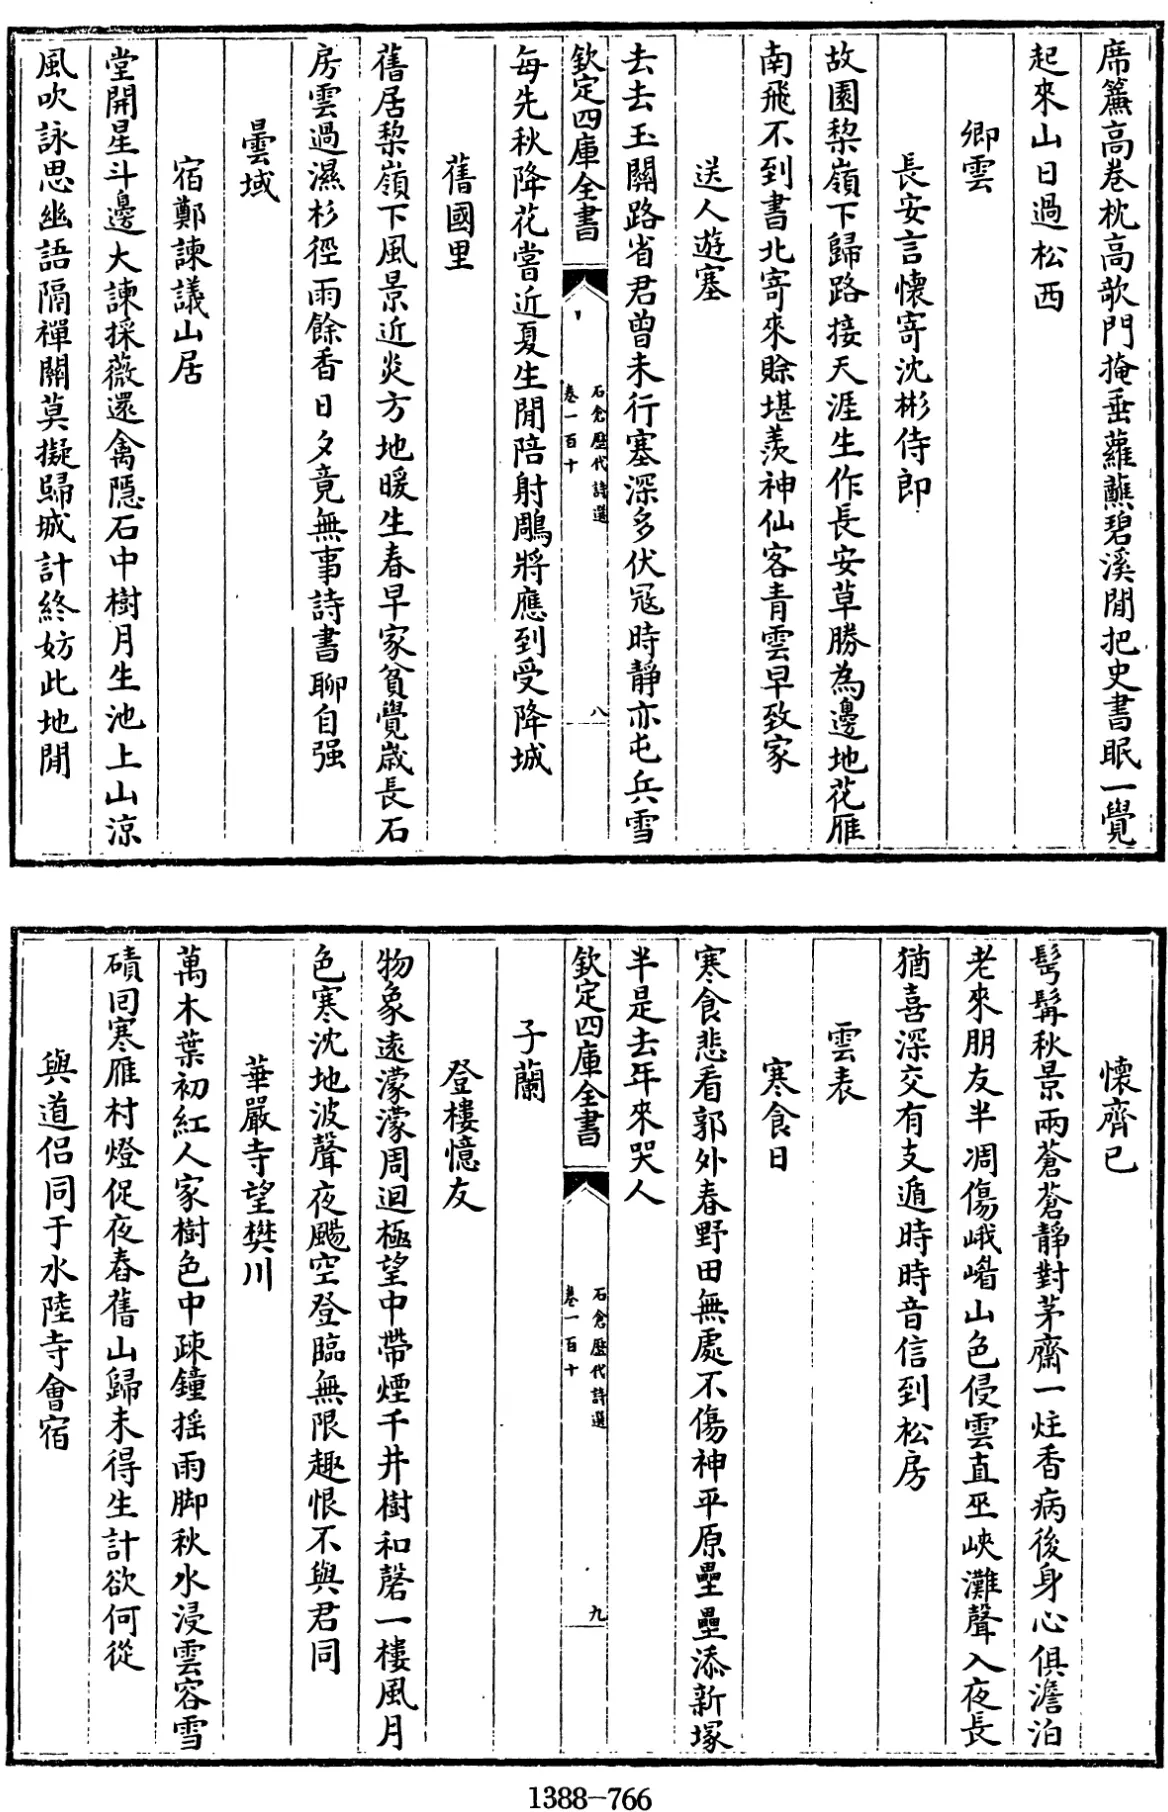 席簾高卷枕高歌門掩垂蘿蘸碧溪閒把史書眠一覺
起來山日過松西
卿雲
長安言懷寄沈彬侍郎
故園梨嶺下歸路接天涯生作長安草勝為邊地花雁
南飛不到書北寄來賒堪羨神仙客青雲早致家
送人遊塞
去去玉關路省君曾未行塞深多伏寇時靜亦屯兵雪
欽定四庫全書
石倉歷代詩選
卷一百十
八
每先秋降花嘗近夏生閒陪射鵰將應到受降城
舊國里
舊居梨嶺下風景近炎方地暖生春早家貧覺歲長石
房雲過濕杉徑雨餘香日夕竟無事詩書聊自强
曇域
宿鄭諫議山居
堂開星斗邊大諫採薇還禽隱石中樹月生池上山涼
風吹詠思幽語隔禪關莫擬歸城計終妨此地閒
懷齊已
髩髯秋景兩蒼蒼靜對茅齋一炷香病後身心俱澹泊
老來朋友半凋傷峨嵋山色侵雲直巫峽灘聲入夜長
猶喜深交有支遁時時音信到松房
雲表
寒食日
寒食悲看郭外春野田無處不傷神平原壘壘添新塚
半是去年來哭人
欽定四庫全書
石倉歷代詩選
卷一百十
九
子蘭
登樓憶友
物象遠濛濛周迴極望中帶煙千井樹和磬一樓風月
色寒沈地波聲夜颺空登臨無限趣恨不與君同
華嚴寺望樊川
萬木葉初紅人家樹色中疎鐘搖雨脚秋水浸雲容雪
磧回寒雁村燈促夜舂舊山歸未得生計欲何從
與道侶同于水陸寺會宿
1388-766